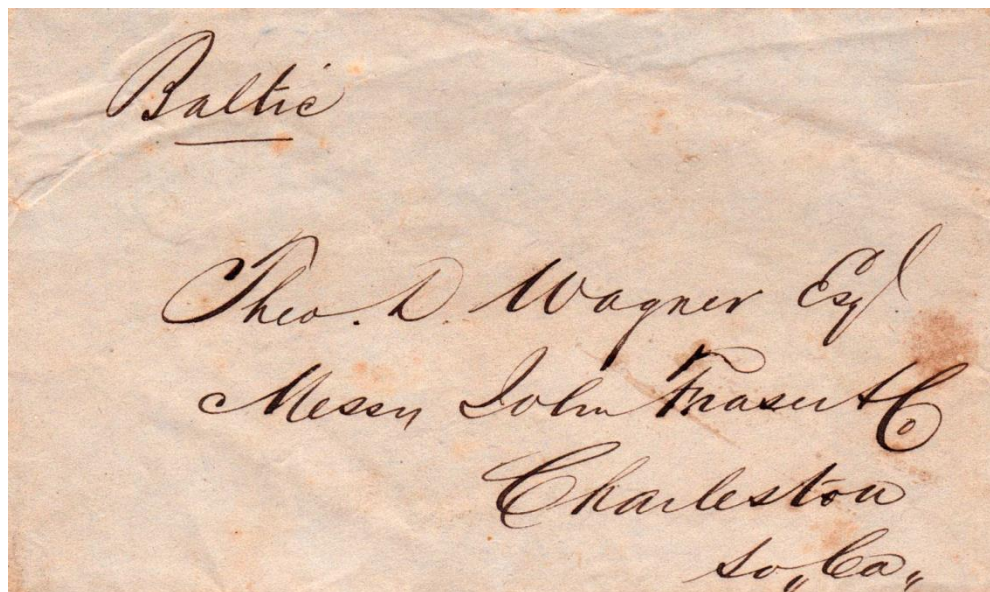 Baltic
Theo. D. Wagner Esq.
Messrs John Fraser & Co
Charleston
So,, Ca,,